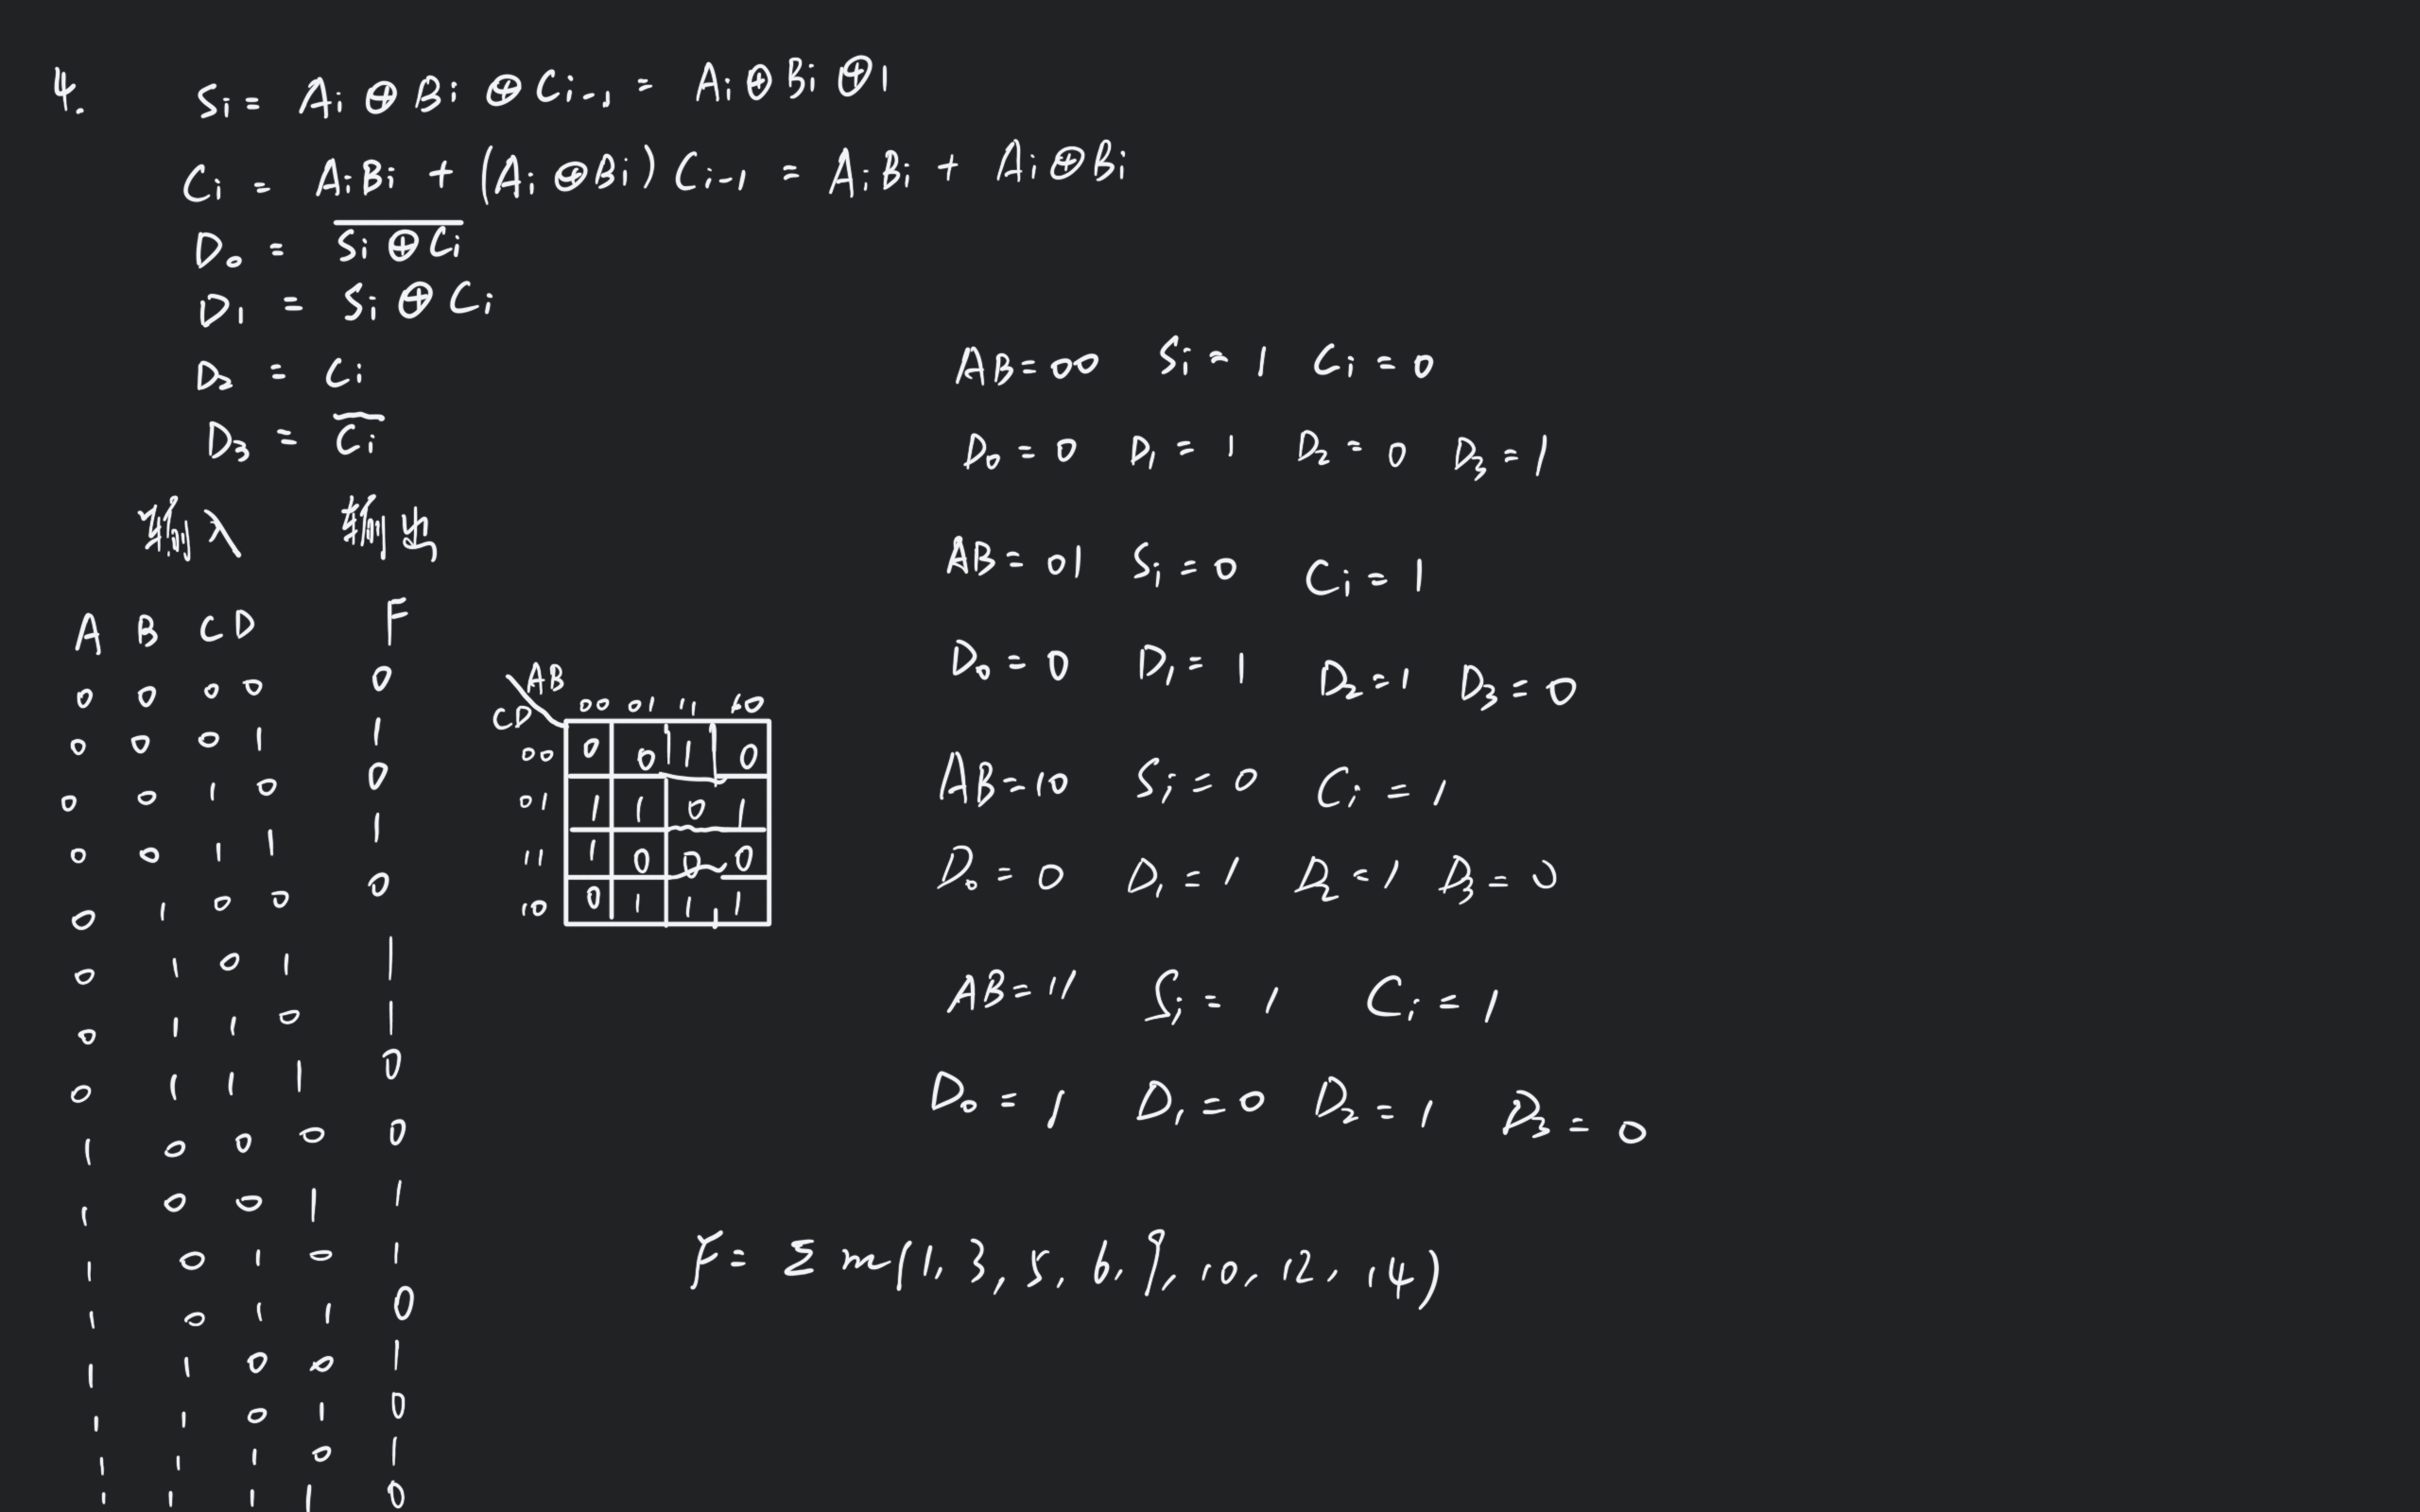 4. Si = Ai ⊕ Bi ⊕ Ci-1 = Ai ⊕ Bi ⊕ 1
Ci = AiBi + (Ai ⊕ Bi) Ci-1 = AiBi + Ai ⊕ Bi
D₀ = \overline{Si ⊕ Ci}
D₁ = Si ⊕ Ci
D₂ = Ci
D₃ = \overline{Ci}
输入 输出
A B C D F
0 0 0 0 0
0 0 0 1 1
0 0 1 0 0
0 0 1 1 1
0 1 0 0 0
0 1 0 1 1
0 1 1 0 1
0 1 1 1 0
1 0 0 0 0
1 0 0 1 1
1 0 1 0 1
1 0 1 1 0
1 1 0 0 1
1 1 0 1 0
1 1 1 0 1
1 1 1 1 0
AB
CD 00 01 11 10
00 0 0 1 0
01 1 1 0 1
11 1 0 0 0
10 0 1 1 1
AB=00 Si=1 Ci=0
D₀=0 D₁=1 D₂=0 D₃=1
AB=01 Si=0 Ci=1
D₀=0 D₁=1 D₂=1 D₃=0
AB=10 Si=0 Ci=1
D₀=0 D₁=1 D₂=1 D₃=0
AB=11 Si=1 Ci=1
D₀=1 D₁=0 D₂=1 D₃=0
F= Σ m(1, 3, 5, 6, 9, 10, 12, 14)